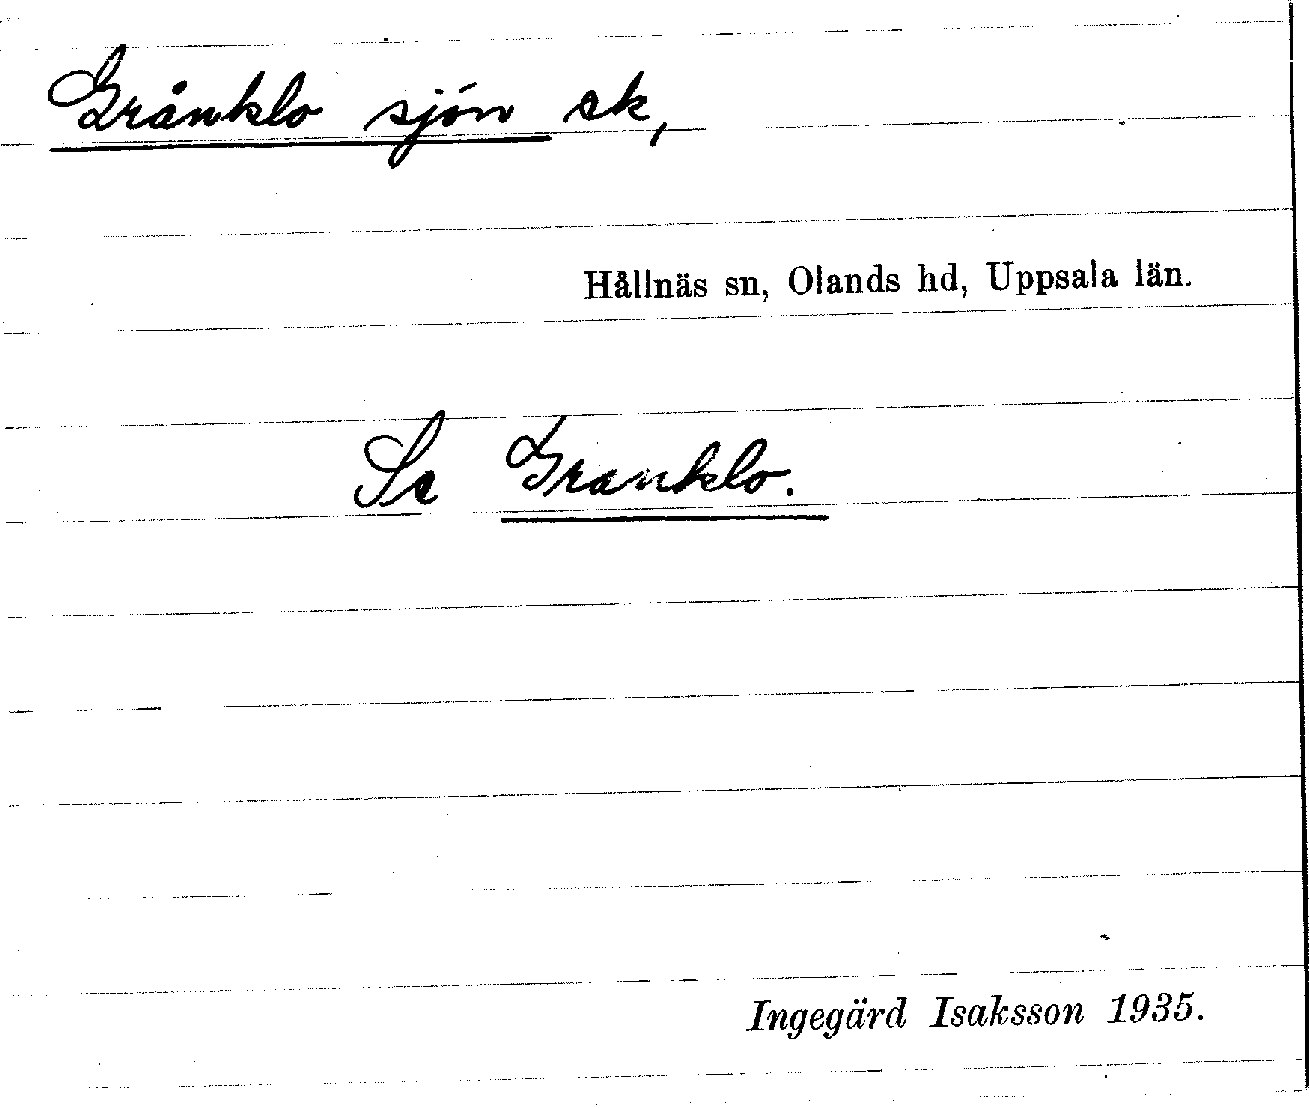 Grånklo sjön sk,
Hållnäs sn, Olands hd, Uppsala län.
Se Granklo.
Ingegärd Isaksson 1935.